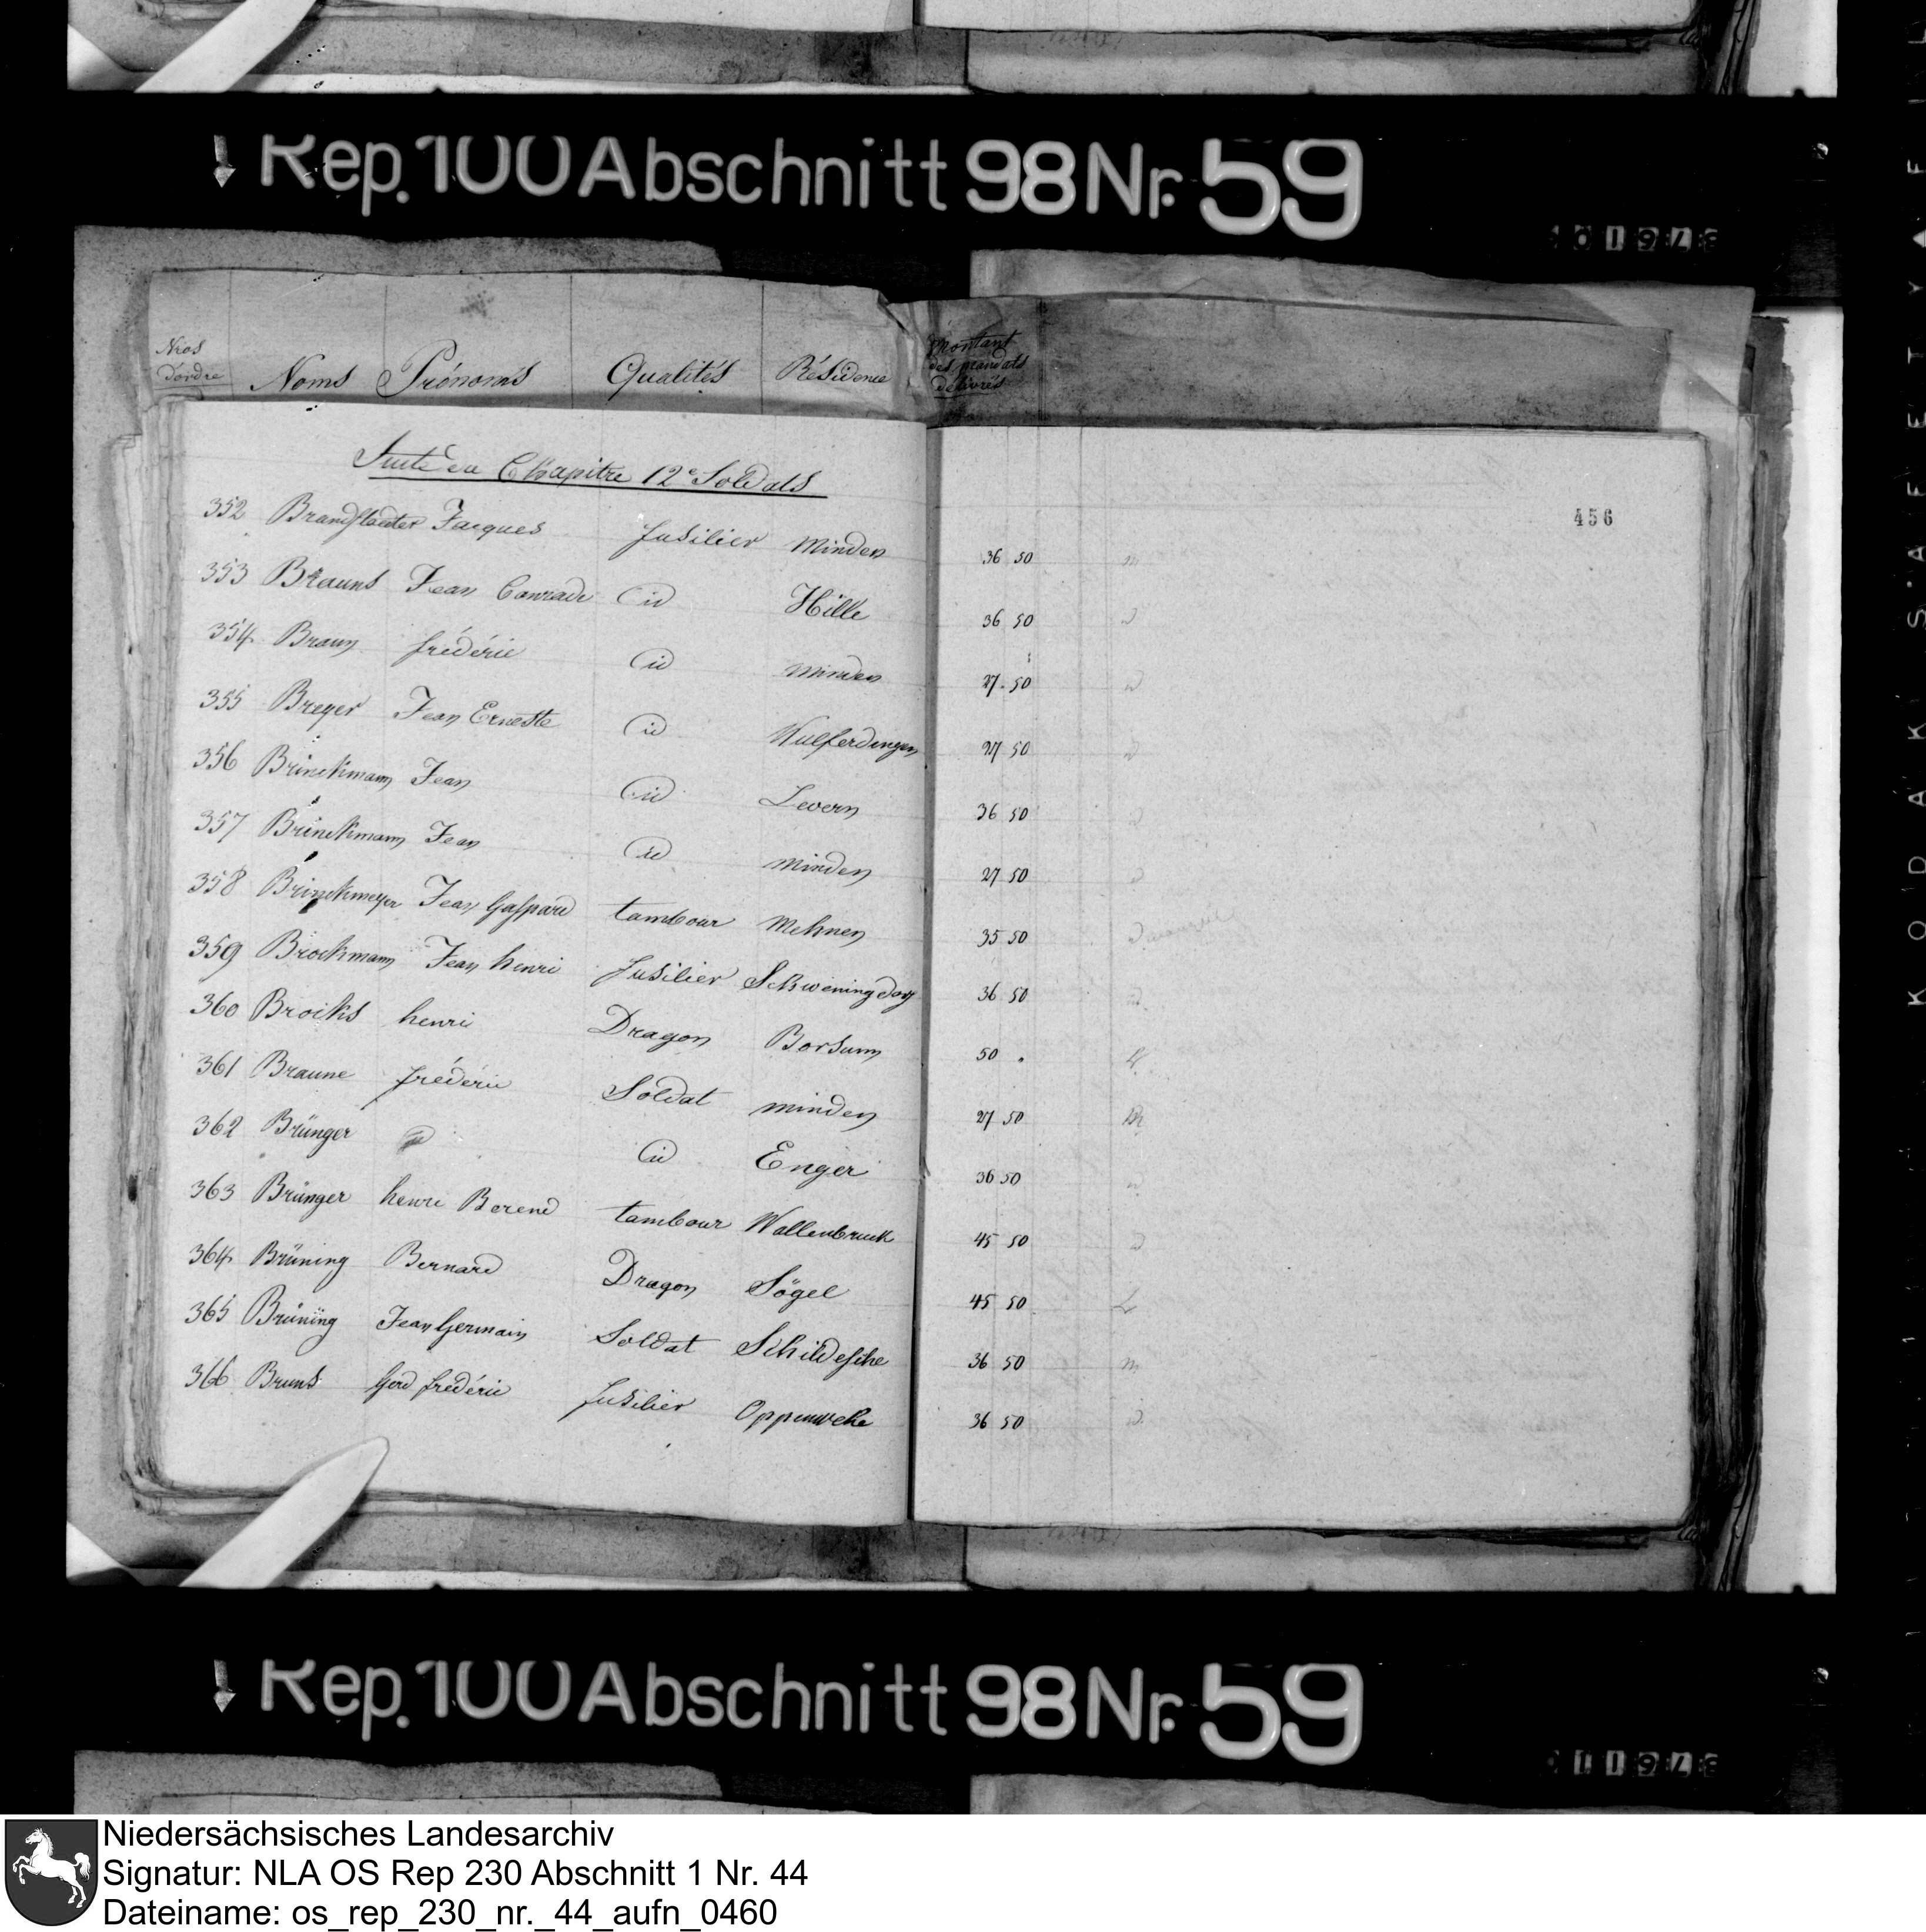 Rep. 100 Abschnitt 98 Nr. 59
Nros d'ordre Noms Prénoms Qualités Résidence Montant des mandats délivrés
Suite du Chapitre 12e Soldats
456
352 Brandstaedter Jacques fusilier Minden 36 50
353 Brauns Jean Conrade id Hille 36 50
354 Braun frédéric id Minden 27.50
355 Breyer Jean Erneste id Wulferdingen 27 50
356 Brinckmann Jean id Levern 36 50
357 Brinckmann Jean id Minden 27 50
358 Brinckmeyer Jean Gaspard tambour Mehnen 35 50
359 Brockmann Jean henri fusilier Schweningdorf 36 50
360 Broiks henri Dragon Borsum 50 "
361 Braune frédéric Soldat minden 27 50
362 Brünger id id Enger 36 50
363 Brünger henri Berend tambour Wallenbruck 45 50
364 Brüning Bernard Dragon Sögel 45 50
365 Brüning Jean Germain Soldat Schildesche 36 50
366 Bruns Gerd frédéric fusilier Oppenwehe 36 50
Rep. 100 Abschnitt 98 Nr. 59
KODAK SAFETY
Niedersächsisches Landesarchiv
Signatur: NLA OS Rep 230 Abschnitt 1 Nr. 44
Dateiname: os_rep_230_nr._44_aufn_0460